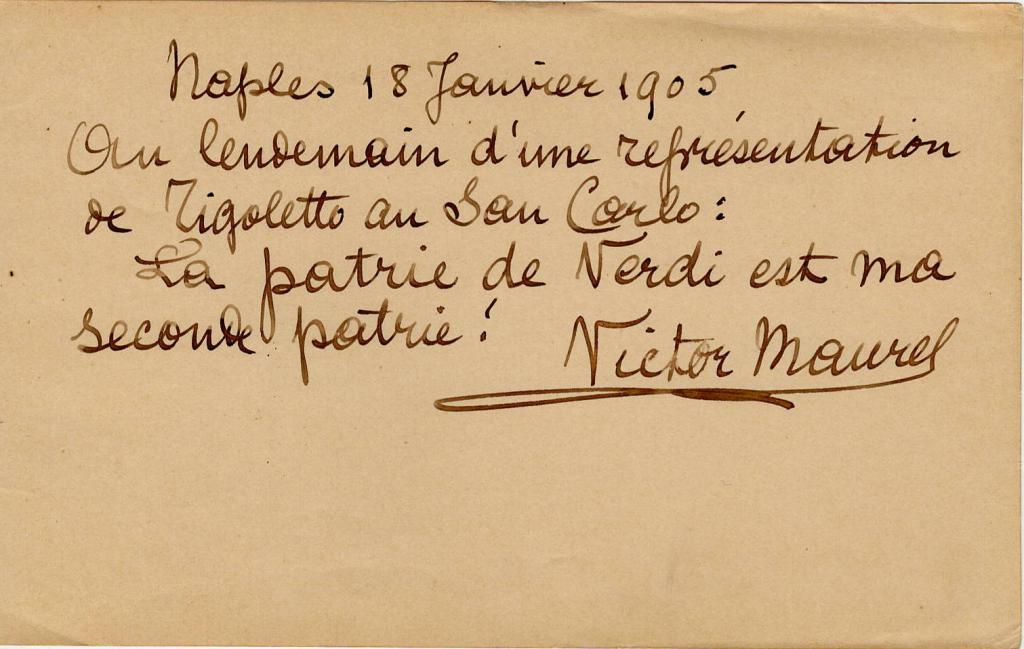 Naples 18 Janvier 1905
Au lendemain d'une représentation
de Rigoletto au San Carlo:
La patrie de Verdi est ma
seconde patrie!
Victor Maurel